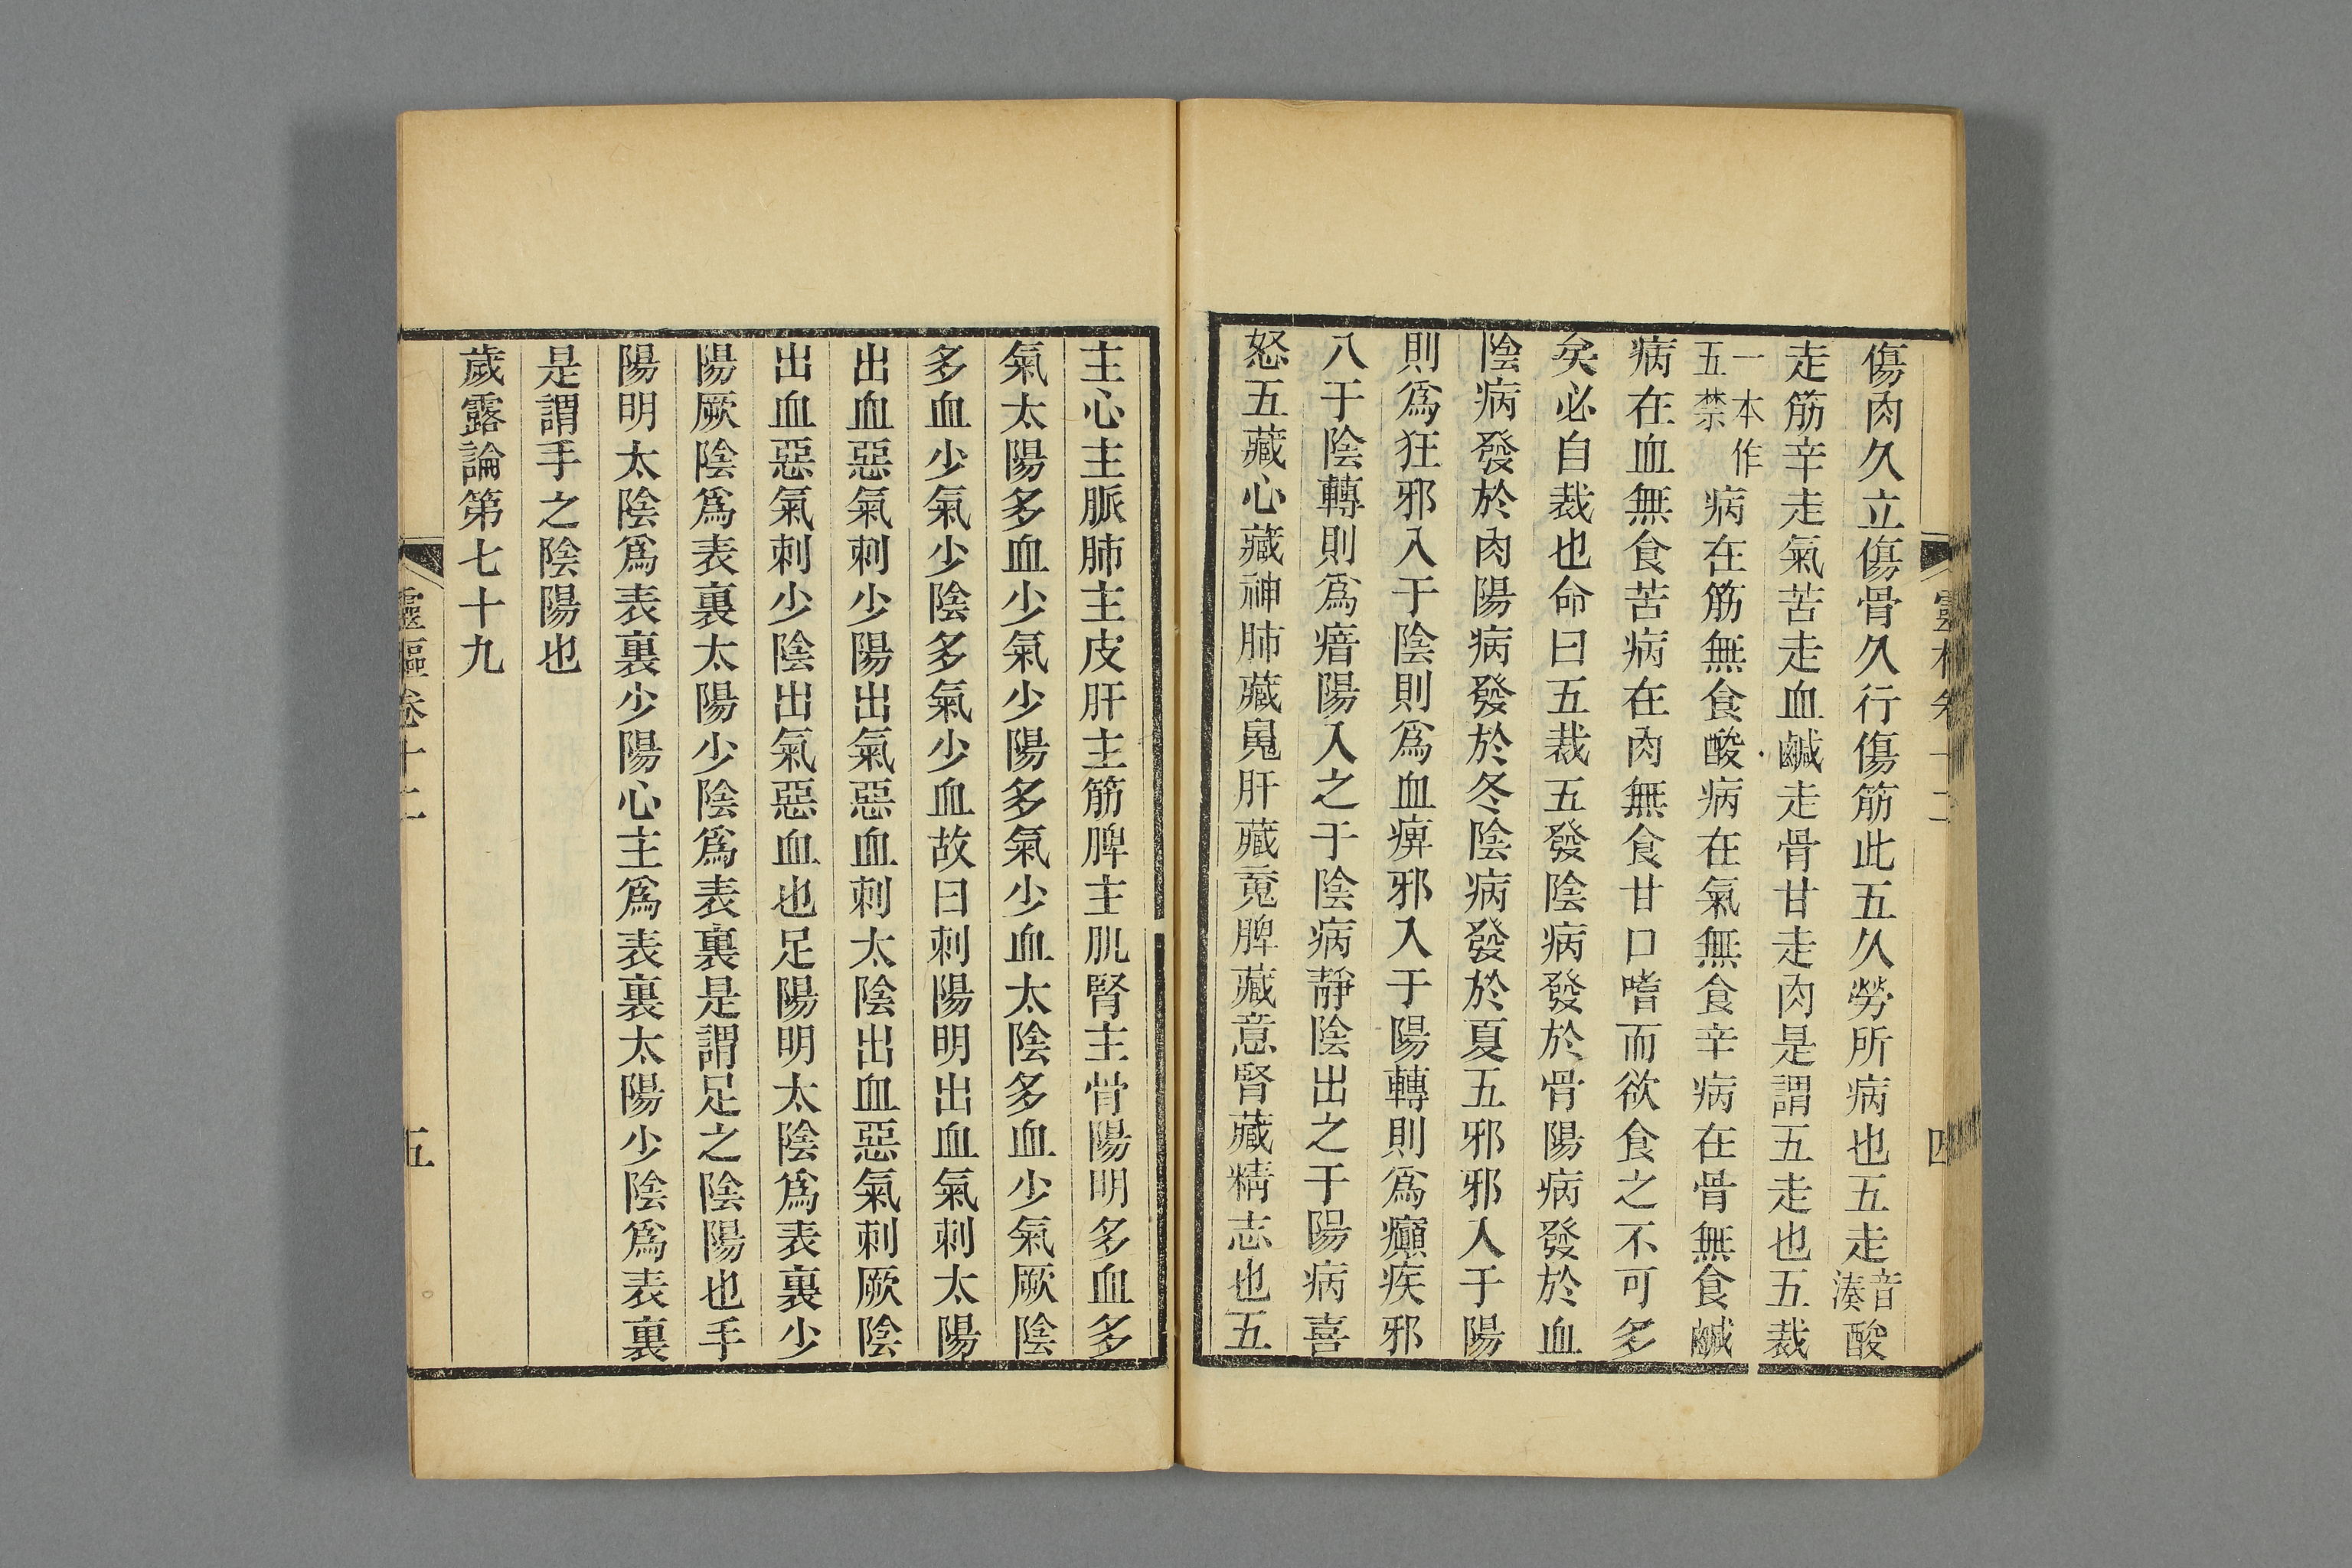 傷肉久立傷骨久行傷筋此五久勞所病也五走音湊酸
走筋辛走氣苦走血鹹走骨甘走肉是謂五走也五裁
一本作五禁病在筋無食酸病在氣無食辛病在骨無食鹹
病在血無食苦病在肉無食甘口嗜而欲食之不可多
矣必自裁也命曰五裁五發陰病發於骨陽病發於血
陰病發於肉陽病發於冬陰病發於夏五邪邪入于陽
則爲狂邪入于陰則爲血痹邪入于陽轉則爲癲疾邪
入于陰轉則爲瘖陽入之于陰病靜陰出之于陽病喜
怒五藏心藏神肺藏鬽肝藏䰟脾藏意腎藏精志也五
四
主心主脈肺主皮肝主筋脾主肌腎主骨陽明多血多
氣太陽多血少氣少陽多氣少血太陰多血少氣厥陰
多血少氣少陰多氣少血故曰刺陽明出血氣刺太陽
出血惡氣刺少陽出氣惡血刺太陰出血惡氣刺厥陰
出血惡氣刺少陰出氣惡血也足陽明太陰爲表裏少
陽厥陰爲表裏太陽少陰爲表裏是謂足之陰陽也手
陽明太陰爲表裏少陽心主爲表裏太陽少陰爲表裏
是謂手之陰陽也
歲露論第七十九
靈樞卷十二
五